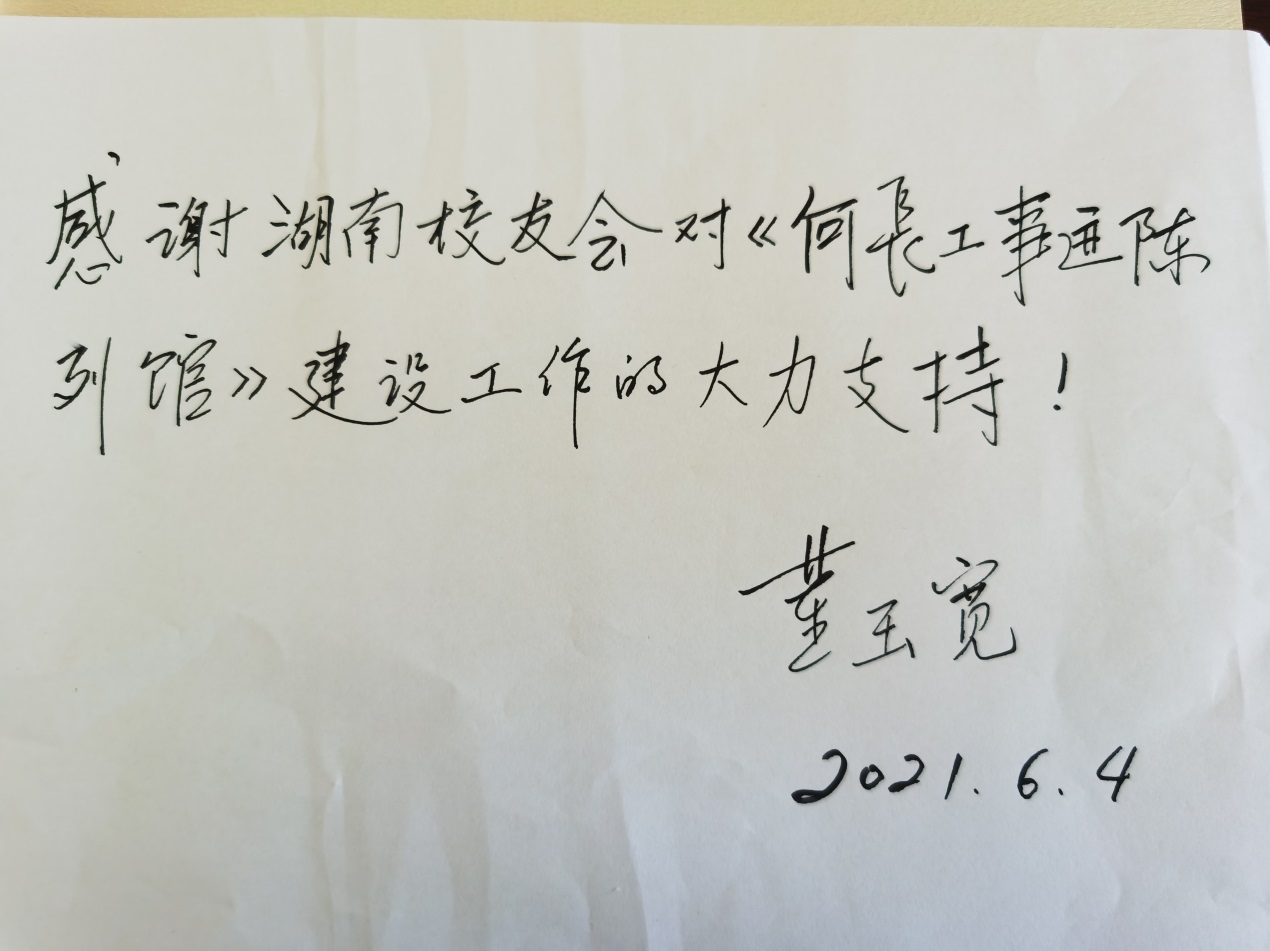 感谢湖南校友会对《何長工事迹陈
列馆》建设工作的大力支持！
董玉宽
2021.6.4